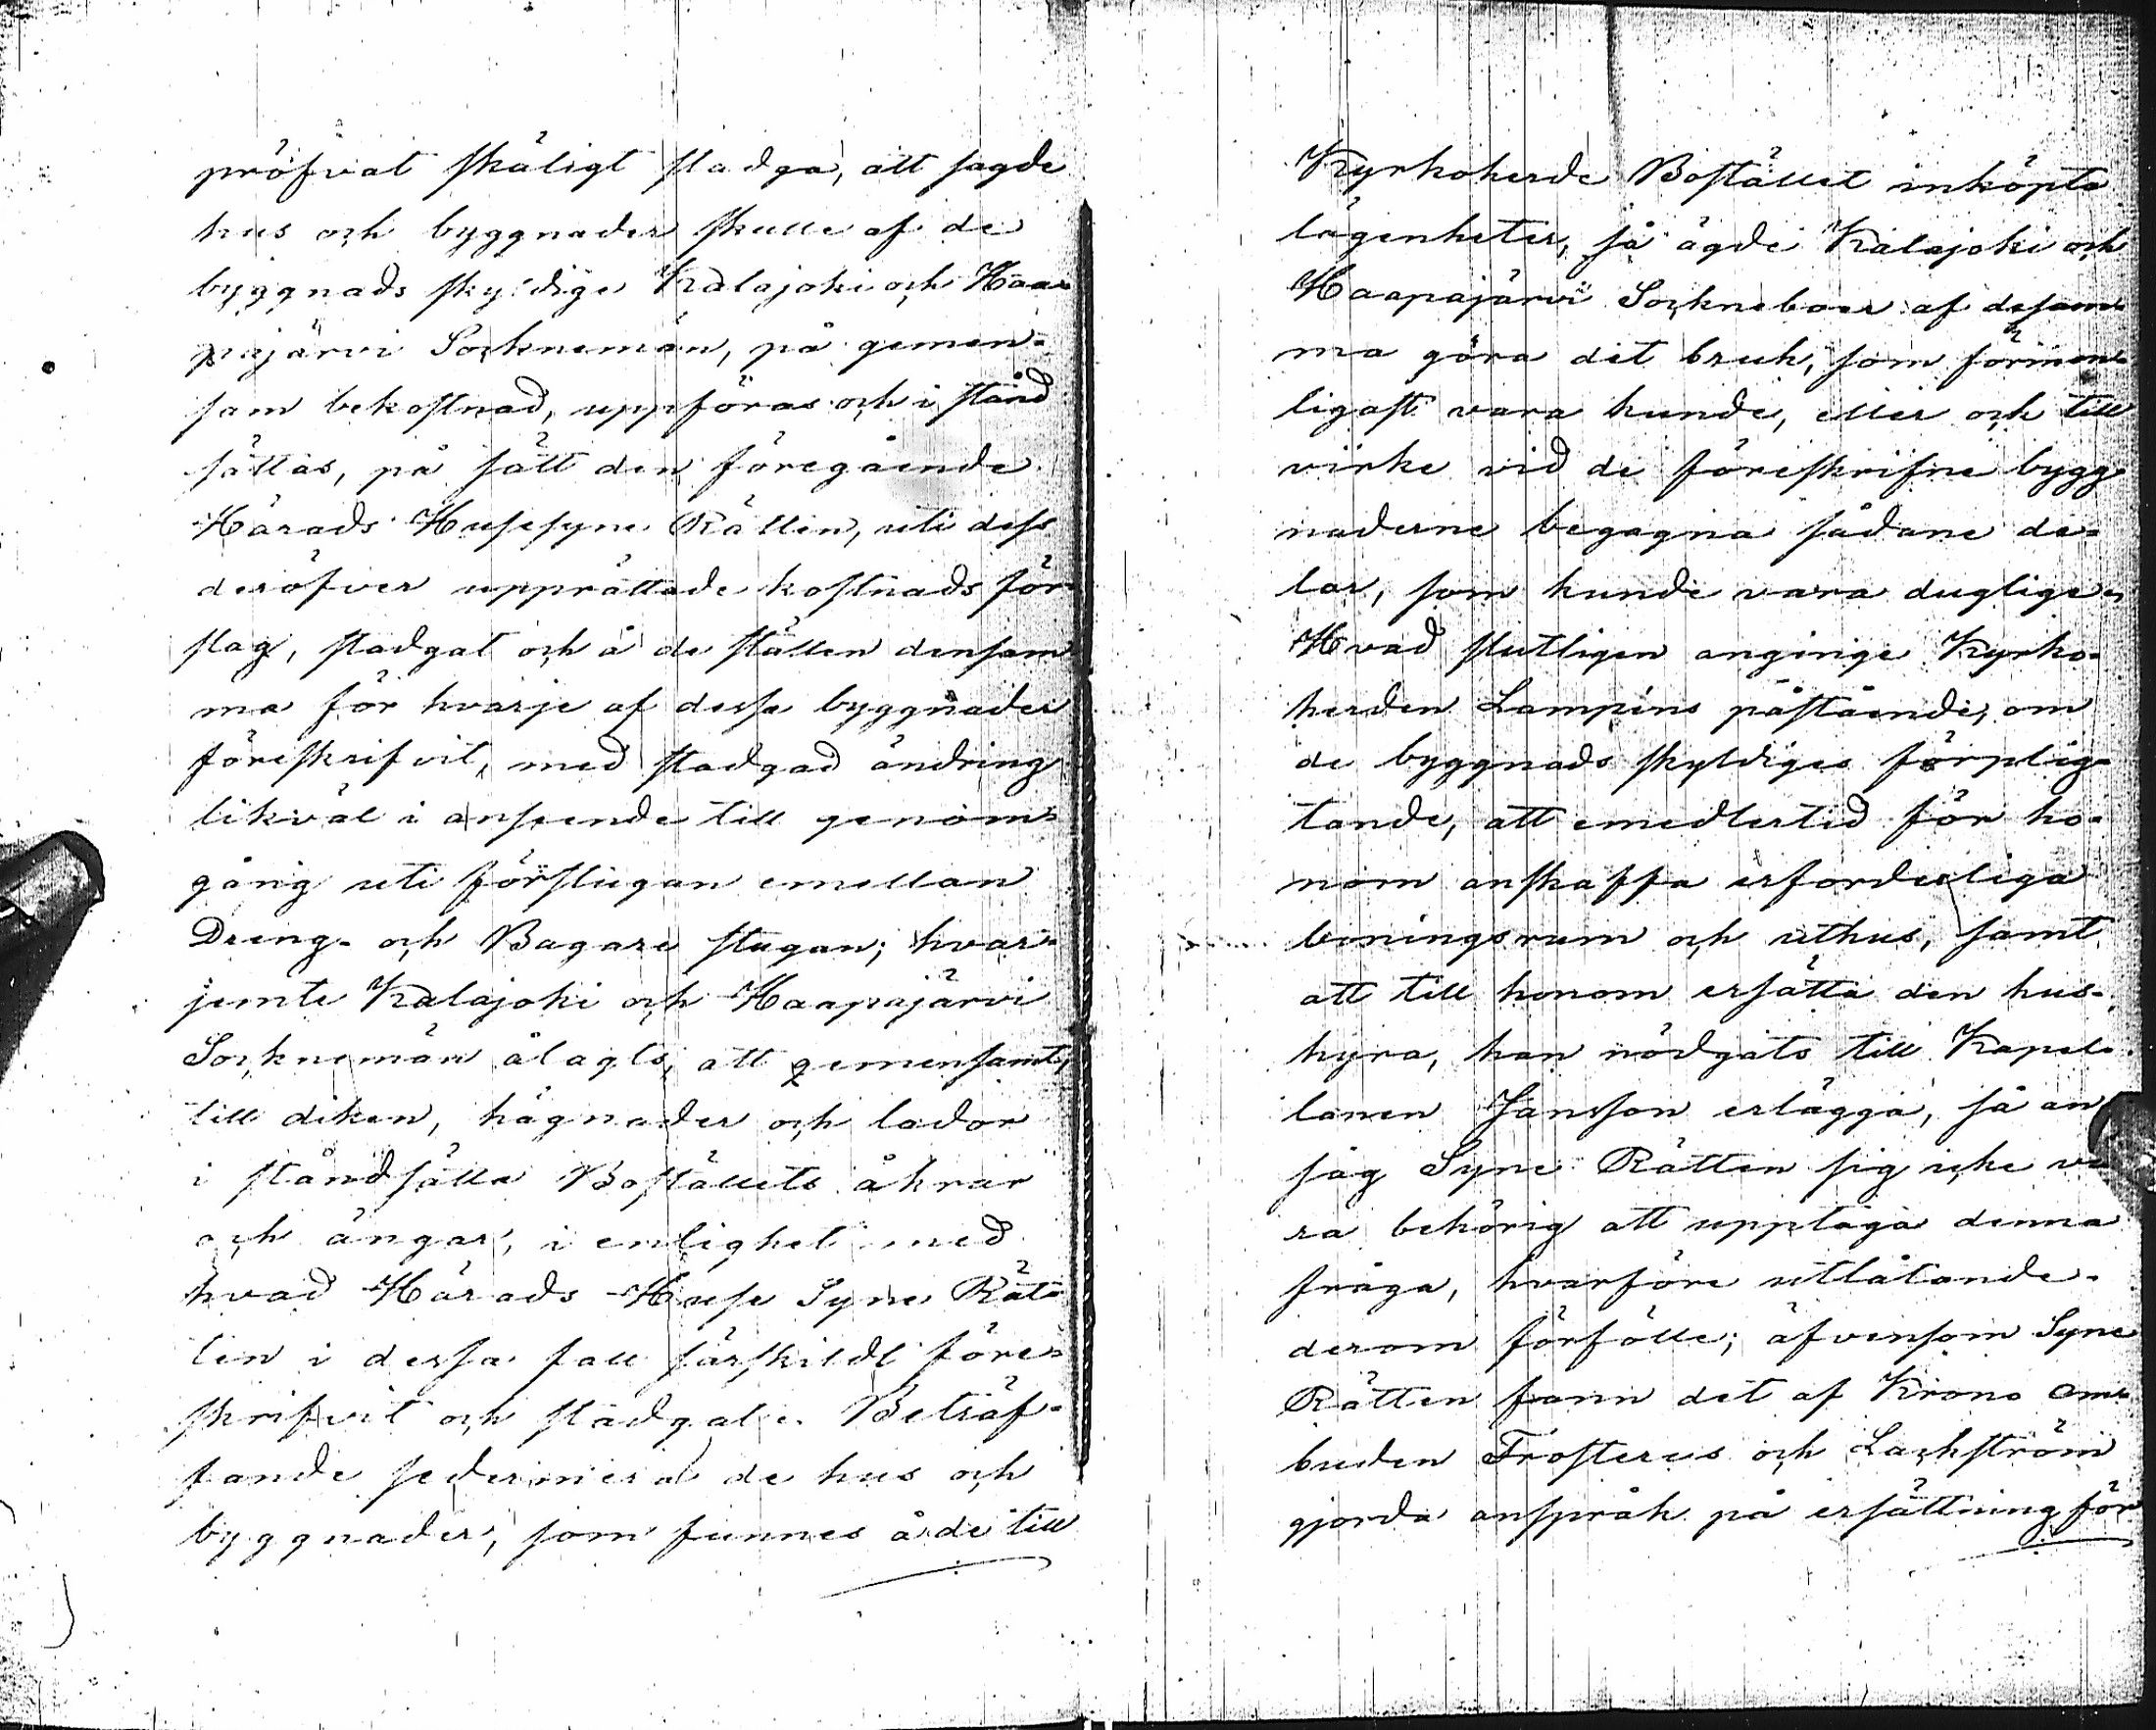 pröfvat skäligt stadga, att sagde
hus och byggnader skulle af de
byggnads skyldige Kalajoki och Haa-
pajärvi Sockneman, på gemen-
sam bekostnad, uppföras och i stånd
sättas, på sätt den föregående
Härads Husesyne Rätten, uti dess
deröfver upprättade kostnads för-
slag, stadgat och å de ställen densam-
ma för hvarje af dessa byggnader
föreskrifvit, med stadgad ändring
likväl i anseende till genom-
gång uti förstugan emellan
Dreng- och Bagare stugan; hvar-
jemte Kalajoki och Haapajärvi
Socknemän ålagts, att gemensamt,
till diken, hägnader och lador
i ståndsätta Boställets åkrar
och ängar, i enlighet med
hvad Härads Huse Syne Rät-
ten i dessa fall särskildt före-
skrifvit och stadgat. Beträf-
fande sedermera de hus och
byggnader, som funnes å de till
Kyrkoherde Bostället inköpta
lägenheter, så ägde Kalajoki och
Haapajärvi Sockneboer af desam-
ma göra det bruk, som förmon-
ligast vara kunde, eller och till
virke vid de föreskrifne bygg-
naderne begagna sådane de-
lar, som kunde vara duglige.
Hvad slutligen anginge Kyrko-
herden Lampéns påstående, om
de byggnads skyldiges förplig-
tande, att emedlertid för ho-
nom anskaffa erforderliga
boningsrum och uthus, samt
att till honom ersätta den hus-
hyra, han nödgats till Kapel-
lanen Jansson erlägga, så an-
såg Syne Rätten sig icke va-
ra behörig att upptaga denna
fråga, hvarföre utlåtande
derom förfölle; äfvensom Syne
Rätten fann det af Krono Om-
buden Frosterus och Lackström
gjorda anspråk på ersättning för